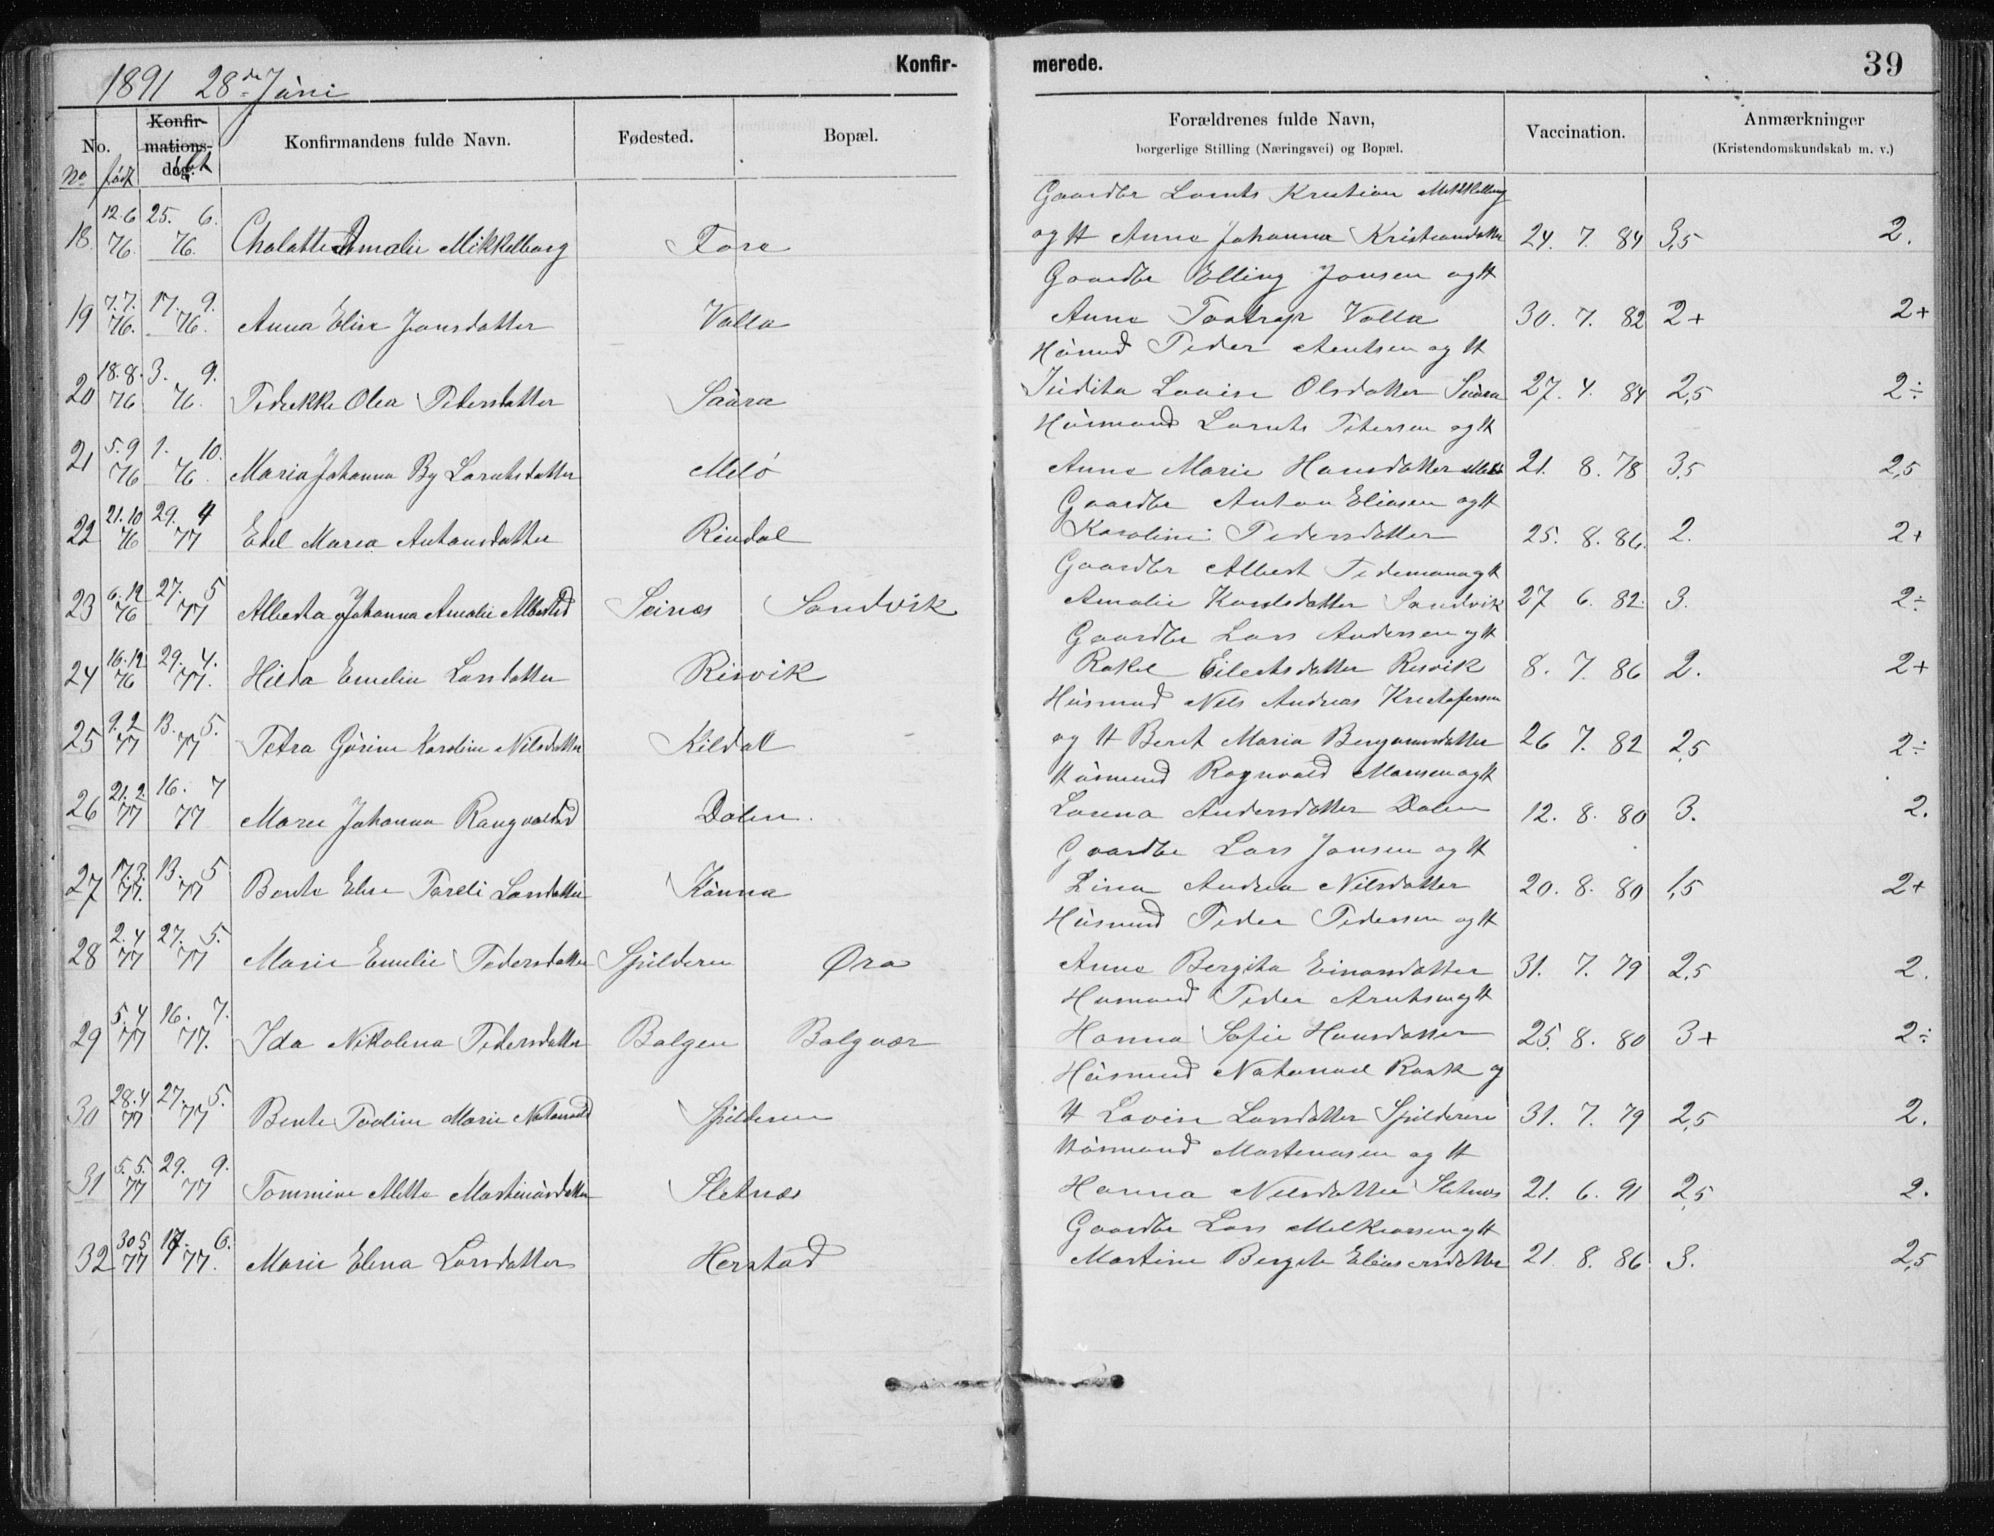 1891 28de Júni
Konfir-
merede.
39
No. Konfir-mations-dag. Konfirmandens fulde Navn. Fødested. Bopæl. Forældrenes fulde Navn, borgerlige Stilling (Næringsvei) og Bopæl. Vaccination. Anmærkninger (Kristendomskundskab m. v.)
No født døbt
Gaardbr Lornts Kristian Mikkelborg
18. 12.6 76. 25. 6. 76. Amalie Mikkelborg Fore og H Anne Johanna Kristiansdatter 24. 7. 84 3,5 2.
Gaardbr Elling Jonsen og H
19 7.7. 76. 17. 9. 76. Anna Elise Jonsdatter Valla Anne Valla 30. 7. 82 2+ 2+
Húsmd Peder Arntsen og H
20 18.8. 76 3. 9. 76. Olea Petersdatter Saúra Júdita Lovise Olsdatter Saúra 27. 4. 84 2,5 2÷
Húsmand Lornts Petersen og H
21 5.9 76 1. 10. 76 Maria Johanna By Lorntsdatter Melö Anne Marie Hansdatter Melö 21. 8. 78 3,5 2,5
Gaardbr Anton Eliasen og H
22 21.10 76 29. 4 77 Edel Maria Antonsdatter Reindal Karoline Pedersdatter 25. 8. 86. 2. 2+
Gaardbr Albert Tidemann og H
23 6.12 76 27. 5 77 Alberta Johanna Amalie Albertsd Seines Sandvik Amalie Sandvik 27 6. 82. 3. 2÷
Gaardbr Lars Andersen og H
24 16.12 76 29. 4. 77. Hilda Emelie Larsdatter Risvik Rakel Eilertsdatter Risvik 8. 7. 86 2. 2+
Húsmand Nils Andreas Kristofersen
25 9.2 77 13. 5. 77 Petra Gúrine Karoline Nilsdatter Kildal og H Beret Maria 26 7. 82 2,5 2÷
Húsmand Ragnvald Monsen og H
26 21.2. 77 16. 7 77 Marie Johanna Rangvaldsd Dalen. Lorena Andersdatter Dalen 12. 8. 80 3. 2.
Gaardbr Lars Jonsen og H
27 17.3. 77. 13. 5 77 Bente Elise Toreli Larsdatter Kúnna Lina Andrea Nilsdatter 20. 8. 80 1,5 2+
Húsmand Peder Pedersen og H
28 2.4 77 27. 5. 77 Marie Emelie Pedersdatter Spilderen Øra Anne Bergita Einarsdatter 31. 7. 79 2,5 2.
Húsmand Peder Arntsen og H
29 5.4 77 16. 7. 77. Ida Nikolena Pedersdatter Bolgen Bolgvær Hanna Sofie Hansdatter 25. 8. 80 3+ 2÷
Húsmand Natanael Rask og
30 28.4 77 27. 5. 77 Bente Paoline Marie Natanaelsd Spilderen H Lovise Larsdatter Spilderen 31. 7. 79 2,5 2.
Húsmand Martinusen og H
31 5.5. 77 29. 9. 77 Tommine Mette Martinúsdatter Sletnæs Hanna Nilsdatter Sletnes 21. 6. 91 2,5 2.
Gaardbr Lars Melkiorsen og H
32 30.5 77 17. 6. 77. Marie Elena Larsdatter Herstad Martine Bergite Elieserdatter 21. 8. 86 3. 2,5